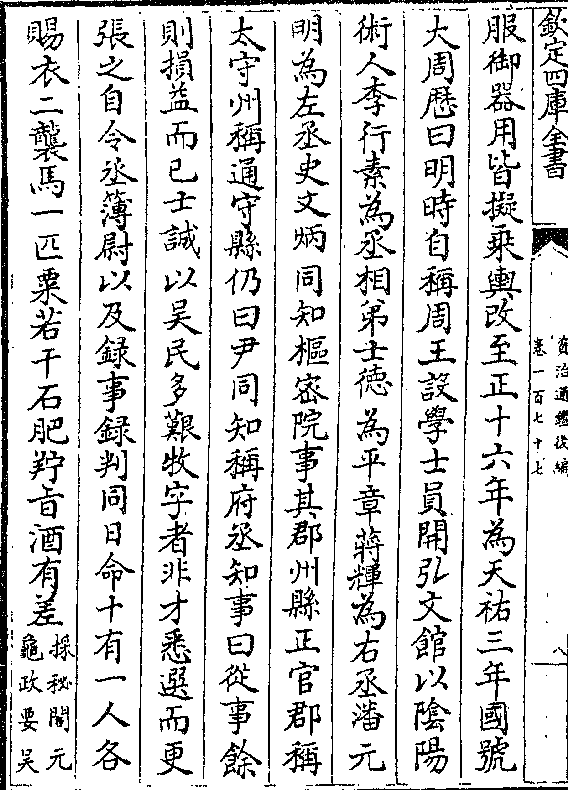 欽定四庫全書
資治通鑑後編
卷一百七十七
八
服御器用皆擬乘輿改至正十六年為天祐三年國號
大周厯曰明時自稱周王設學士員開弘文館以隂陽
術人李行素為丞相弟士德為平章蔣輝為右丞潘元
明為左丞史文炳同知樞宻院事其郡州縣正官郡稱
太守州稱通守縣仍曰尹同知稱府丞知事曰從事餘
則損益而已士誠以吴民多艱牧字者非才悉選而更
張之自令丞簿尉以及録事録判同日命十有一人各
賜衣二襲馬一匹粟若干石肥羜旨酒有差
採秘閣元
龜政要吴